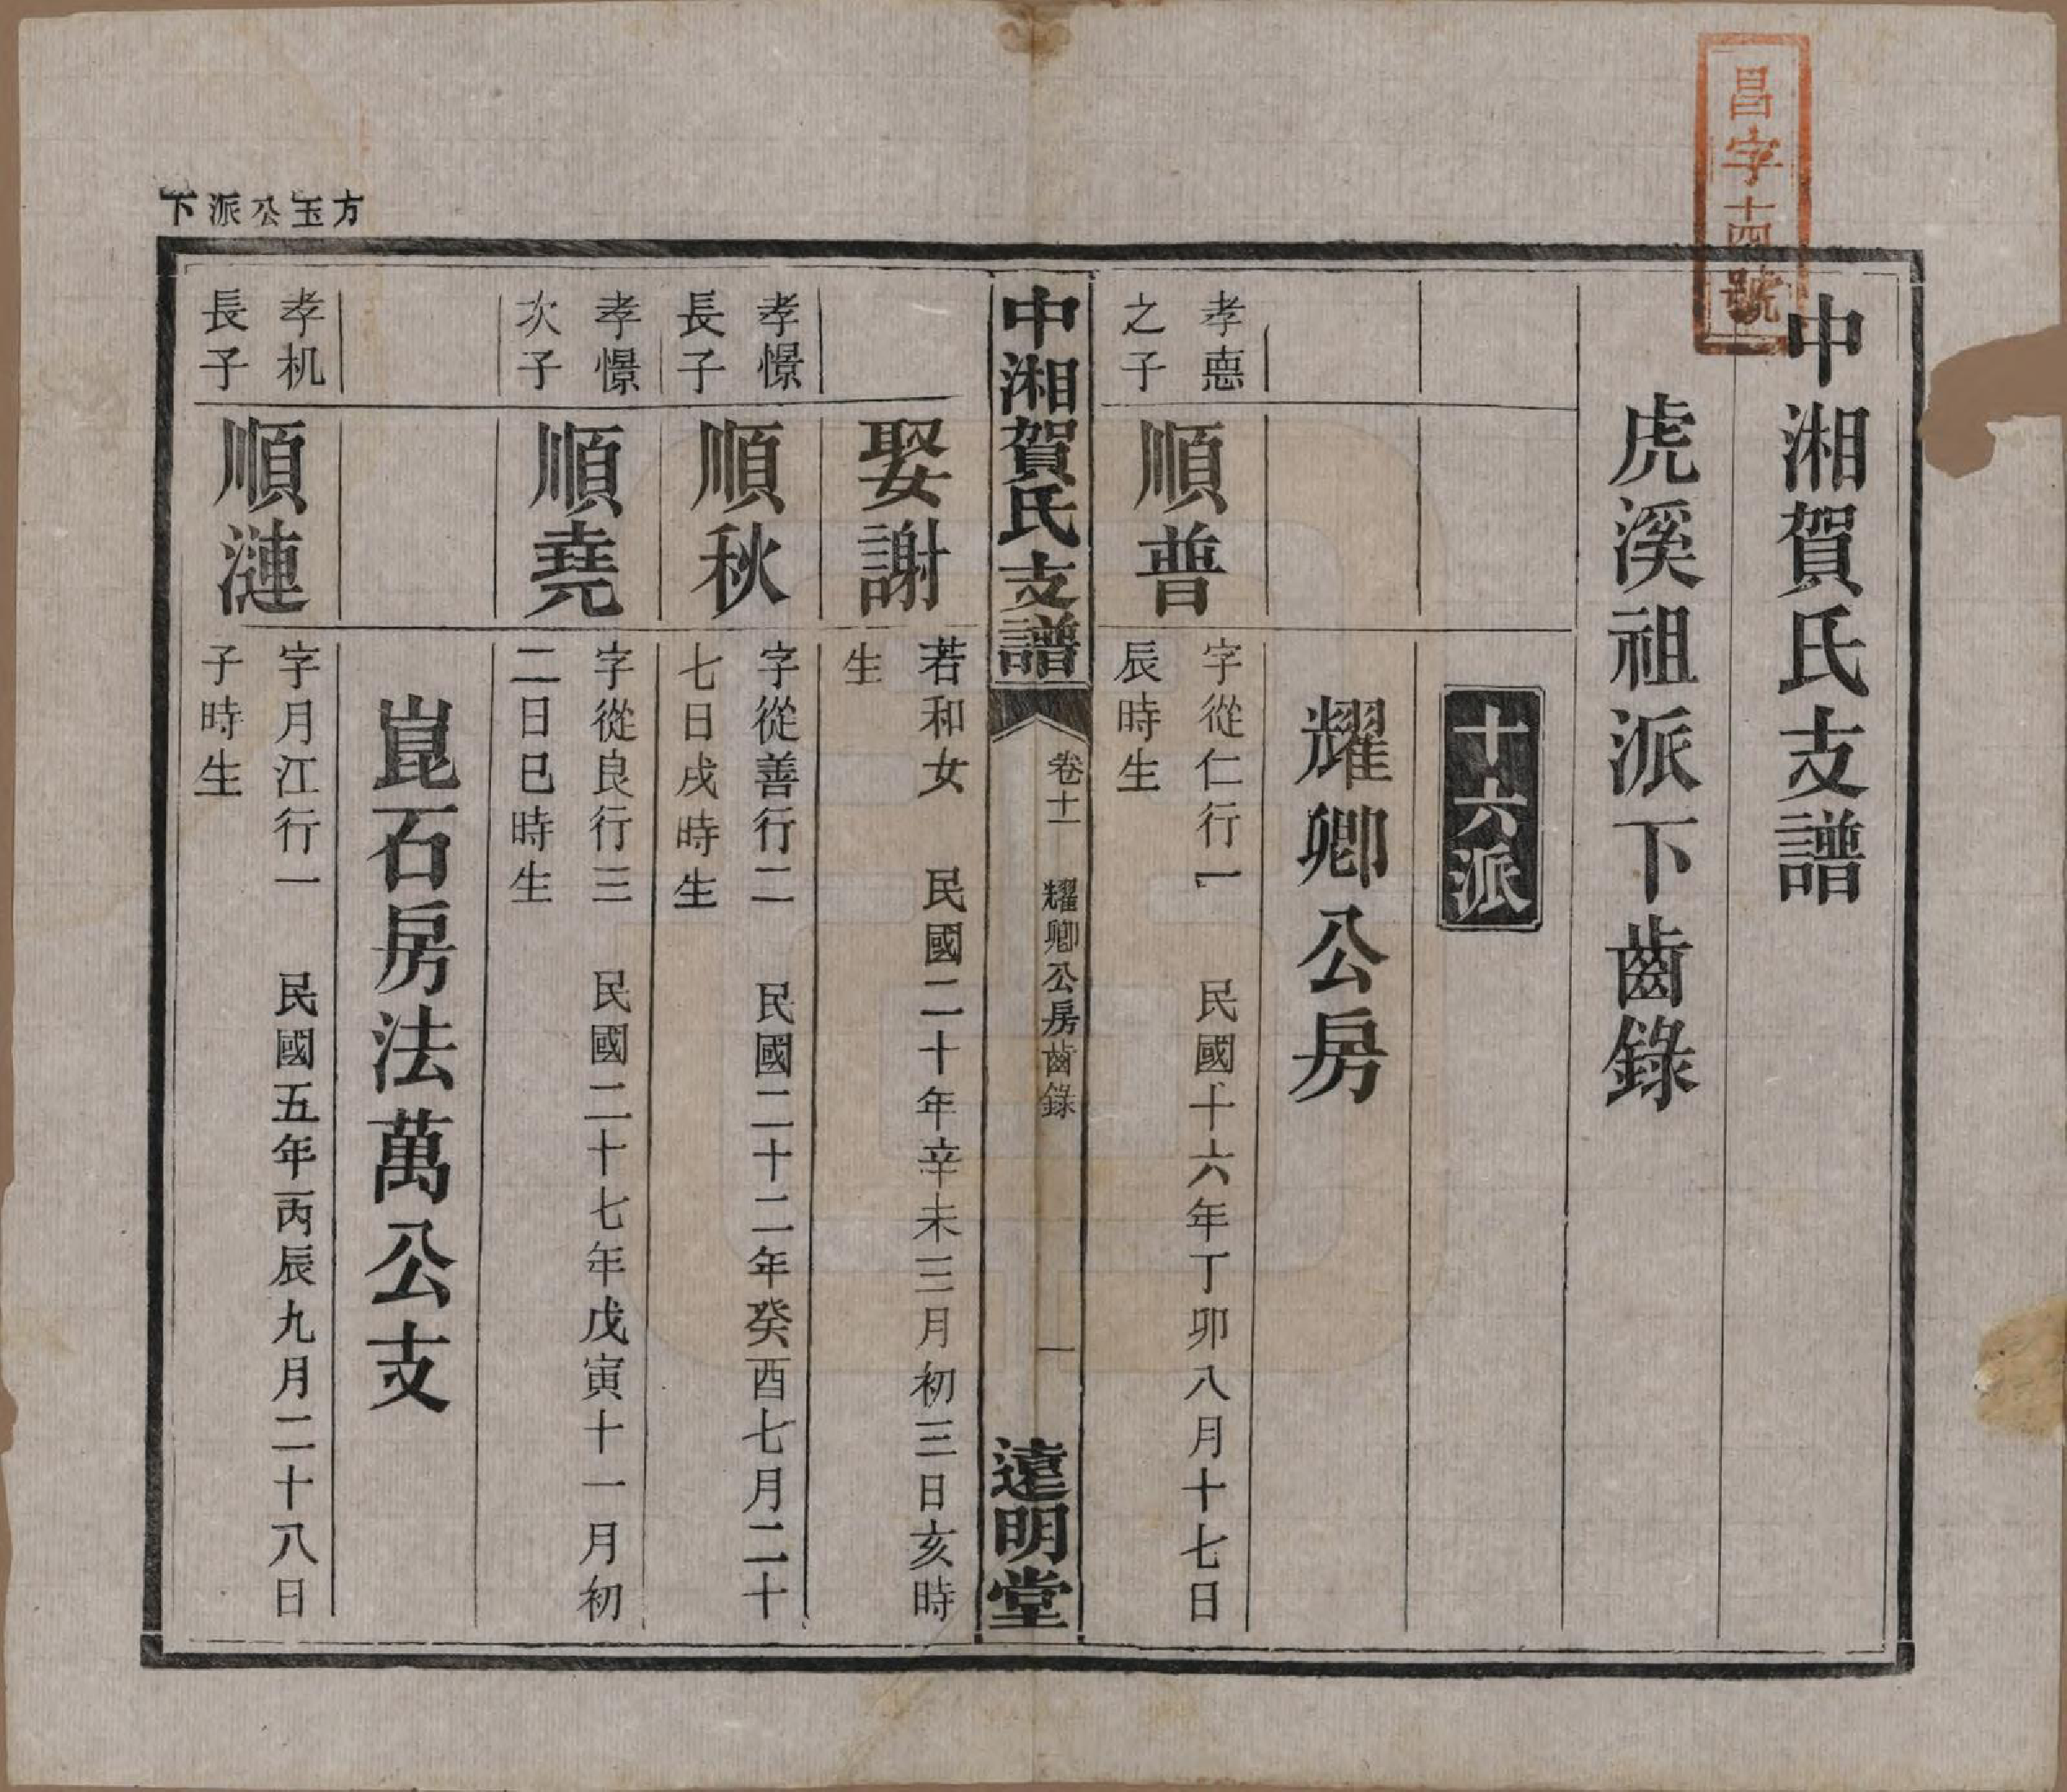 昌字十四號
中湘賀氏支譜
虎溪祖派下齒錄
十六派
耀卿公房
孝悳
之子
順普
字從仁行一　民國十六年丁卯八月十七日
辰時生
中湘賀氏支譜
卷十一　耀卿公房齒錄
一
達明堂
娶謝
若和女　民國二十年辛未三月初三日亥時
生
孝憬
長子
順秋
字從善行二　民國二十二年癸酉七月二十
七日戌時生
孝憬
次子
順堯
字從良行三　民國二十七年戊寅十一月初
二日巳時生
崑石房法萬公支
方玉公派下
孝机
長子
順漣
字月江行一　民國五年丙辰九月二十八日
子時生